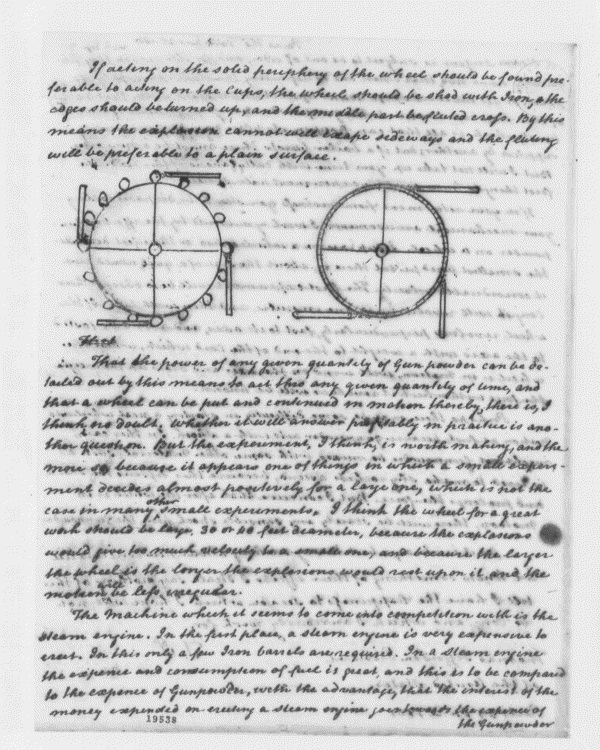 If acting on the solid periphery of the wheel should be found pre-
ferable to acting on the Cups, the wheel should be shod with Iron, & the
edges should be turned up, and the middle part be fluted cross. By this
means the explosion cannot well escape sideways and the fluting
will be preferable to a plain surface.
That the power of any given quantity of Gun powder can be de-
tailed out by this means to act thro any given quantity of time, and
that a wheel can be put and continued in motion thereby, there is, I
think no doubt. Whether it will answer profitably in practice is ano-
ther question. But the experiment, I think, is worth making, and the
more so because it appears one of things in which a small experi-
ment decides almost positively for a large one, which is not the
case in many other small experiments. I think the wheel for a great
work should be large, 30 or 40 feet diameter, because the explosions
would give too much velocity to a small one, and because the larger
the wheel is the longer the explosions would rest upon it and the
motion will be less irregular.
The machine which it seems to come into competition with is the
steam engine. In the first place, a steam engine is very expensive to
erect. In this only a few Iron barrels are required. In a steam engine
the expence and consumption of fuel is great, and this is to be compared
to the expence of Gunpowder, with the advantage, that the interest of the
money expended on erecting a steam engine goes towards the expence of
the Gunpowder
19538